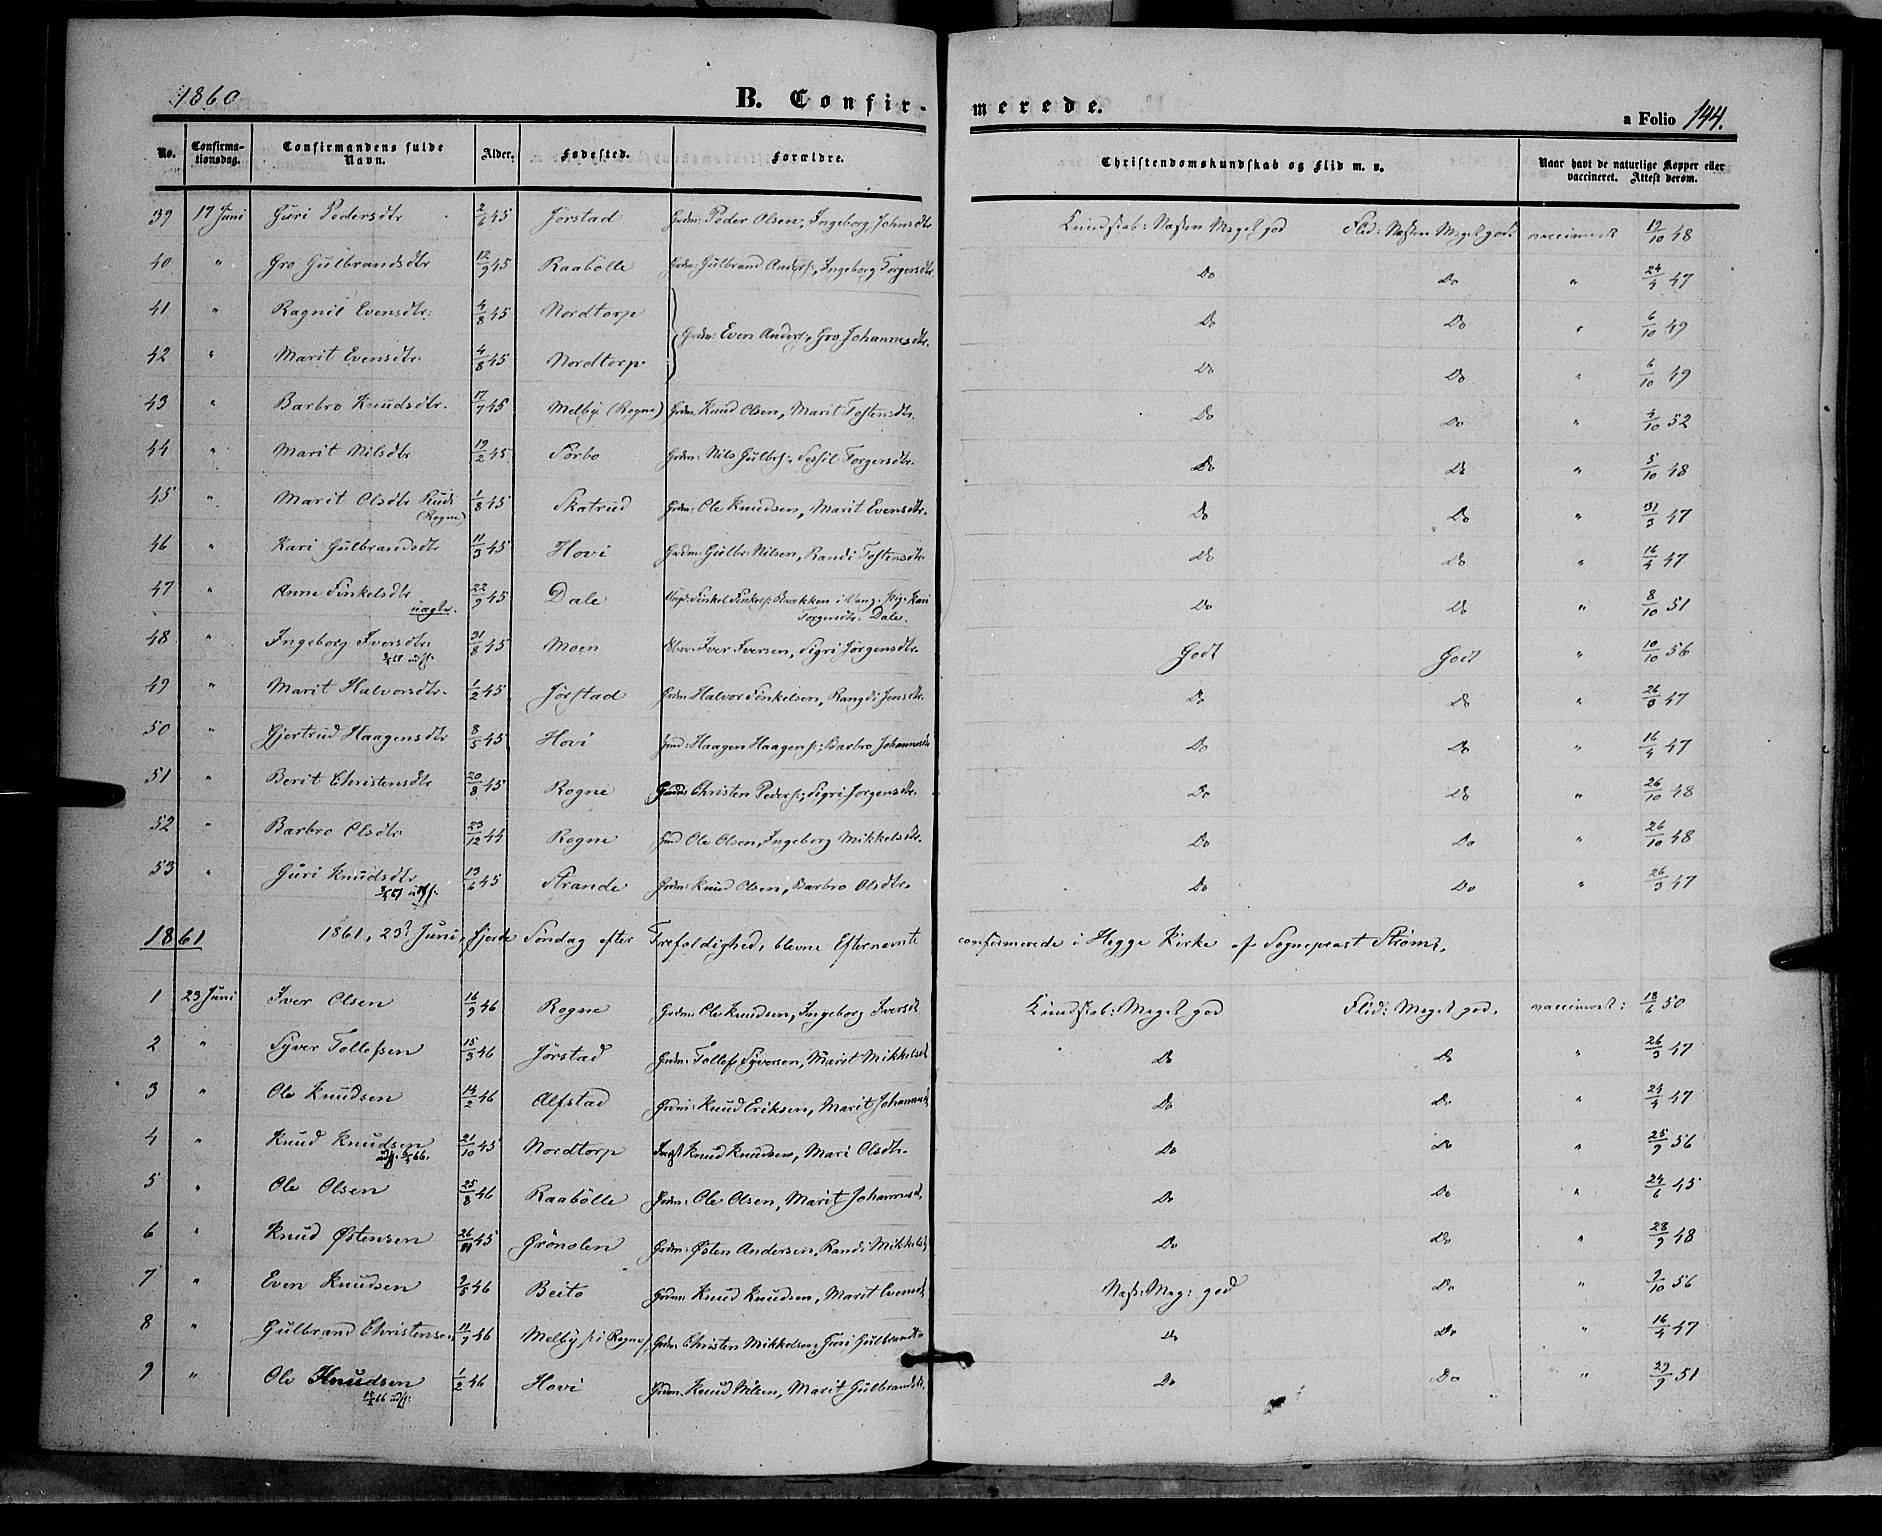 1860
B. Confirmerede.
a Folio 144.
No. Confirmationsdag. Confirmandens fulde Navn. Alder. Fødested. Forældre. Christendomskundskab og Flid m. v. Naar havt de naturlige Kopper eller vaccineret. Attest derom.
39 17 Juni Guri Pedersdtr 2/6 45 Jørstad Grdm: Peder Olsen, Ingeborg Johnsdtr Kundskab: Næsten Meget god Flid: Næsten Meget god vaccineret 19/10 48
40 " Gro Gulbrandsdtr 12/9 45 Raabølle Grdm: Gulbrand Anders:, Ingeborg Torgersdtr Do Do " 24/4 47
41 " Ragnil Evensdtr: 4/8 45 Nordtorp Grdm: Even Anders:, Gro Johannesdtr. Do Do " 6/10 49
42 " Marit Evensdtr: 4/8 45 Nordtorp Do Do " 6/10 49
43 " Barbro Knudsdtr. 17/7 45 Melby (Rogne) Grdm: Knud Olsen, Marit Tostensdtr. Do Do " 4/10 52
44 " Marit Nilsdtr 19/2 45 Sørbo Grdm: Nils Gulbr:, Sessil Torgersdtr. Do Do " 5/10 48
45 " Marit Olsdtr Rud (Rogne) 1/8 45 Skatrud Grdm: Ole Knudsen, Marit Evensdtr. Do Do " 31/3 47
46 " Kari Gulbrandsdtr 11/3 45 Hovi Grdm: Gulbr: Nilsen, Randi Tostensdtr. Do Do " 16/4 47
47 " Anne Finkelsdtr uægte. 22/9 45 Dale Finkel Finkels: Bækken i Vang, Pig: Kari Torgersdtr. Dale. Do Do " 8/10 51
48 " Ingeborg Iversdtr: 31/8 45 Moen Iver Iversen, Sigri Jørgensdtr. Godt Godt " 10/10 56
49 " Marit Halvorsdtr. 1/2 45 Jørstad Grdm Halvor Finkelsen, Rangdi Jensdtr. Do Do " 26/3 47
50 " Gjertrud Haagensdtr 8/5 45 Hovi Haagen Haagens:, Barbro Johannesdr Do Do " 16/4 47
51 " Berit Christensdtr 20/8 45 Rogne Christen Peders:, Sigri Jørgensdtr. Do Do " 26/10 48
52 " Barbro Olsdtr. 23/12 44 Rogne Ole Olsen, Ingeborg Mikkelsdtr. Do Do " 26/10 48
53 " Guri Knudsdtr 13/6 45 Strande Grdm: Knud Olsen, Barbro Olsdtr. Do Do " 26/3 47
1861 1861, 23d Juni, fjerde Søndag efter Trefoldighed, blevne Efternevnte confirmerede i Hegge Kirke af Sogneprest Strøm.
1 23 Juni Iver Olsen 16/9 46 Rogne Grdm: Ole Knudsen, Ingeborg Iversdt Kundskab: Meget god Flid: Meget god. vaccineret: 18/6 50
2 " Syver Tollefsen 15/3 46 Jørstad Grdm: Tollef Syversen, Marit Mikkelsdt Do Do " 26/3 47
3 " Ole Knudsen 14/2 46 Alfstad Grdm: Knud Eriksen, Marit Johannesd Do Do " 24/4 47
4 " Knud Knudsen 21/10 45 Nordtorp Knud Knudsen, Mari Olsdtr. Do Do " 25/9 56
5 " Ole Olsen 25/3 46 Raabølle Grdm: Ole Olsen, Marit Johannesd. Do Do " 24/6 45
6 " Knud Østensen 26/11 45 Grönolen Grdm: Østen Andersen, Randi Mikkelsd Do Do " 28/9 48
7 " Even Knudsen 2/5 46 Beito Grdm: Knud Knudsen, Marit Evensd. Næst: Meg: god Do " 9/10 56
8 " Gulbrand Christensen 11/9 46 Melby /: i Rogne / Grdm: Christen Mikkelsen, Guri Gulbrandsd. Do Do " 16/4 47
9 " Ole Knudsen 1/2 46 Hovi Grdm: Knud Nilsen, Marit Gulbrandsd. Do Do " 29/9 51